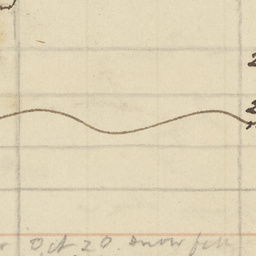 2
2
Oct 20. snow fell